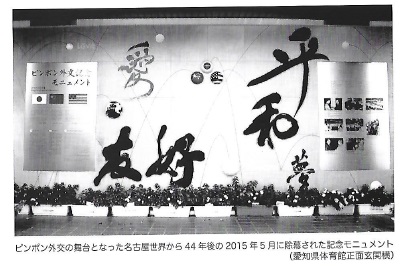 ピンポン外交記念
モニュメント
愛
平和
友好
夢
ピンポン外交の舞台となった名古屋世界から44年後の2015年5月に除幕された記念モニュメント
（愛知県体育館正面玄関横）